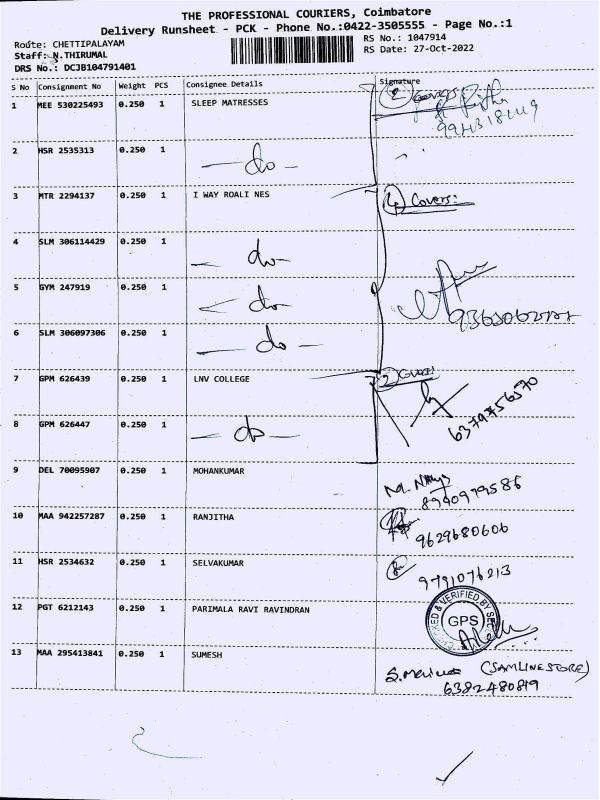 THE PROFESSIONAL COURIERS, Coimbatore
Delivery Runsheet - PCK - Phone No.:0422-3505555 - Page No.:1
Route: CHETTIPALAYAM
RS No.: 1047914
Staff: N.THIRUMAL
RS Date: 27-Oct-2022
DRS No.: DCJB104791401
S No Consignment No Weight PCS Consignee Details Signature
1 MEE 530225493 0.250 1 SLEEP MATRESSES 2 Covers
2 HSR 2535313 0.250 1 - do -
3 MTR 2294137 0.250 1 I WAY ROALI NES 4 Covers:
4 SLM 306114429 0.250 1 - do -
5 GYM 247919 0.250 1 - do -
6 SLM 306097306 0.250 1 - do -
7 GPM 626439 0.250 1 LNV COLLEGE 2 Covers
6379756570
8 GPM 626447 0.250 1 - do -
9 DEL 70095907 0.250 1 MOHANKUMAR
8940979586
10 MAA 942257287 0.250 1 RANJITHA
9629680606
11 HSR 2534632 0.250 1 SELVAKUMAR
9791076213
12 PGT 6212143 0.250 1 PARIMALA RAVI RAVINDRAN
GPS
13 MAA 295413841 0.250 1 SUMESH
(SAMLINE STORE)
6382480819